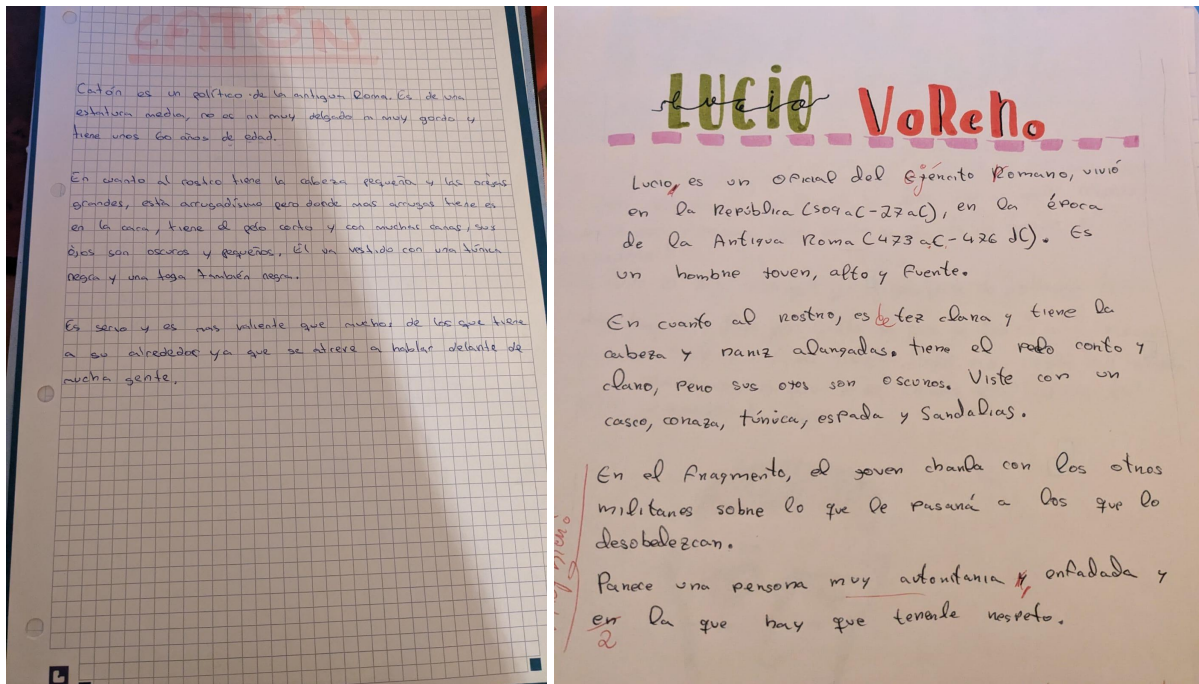 CATÓN
Catón es un político de la antigua Roma. Es de una
estatura media, no es ni muy delgado ni muy gordo y
tiene unos 60 años de edad.
En cuanto al rostro tiene la cabeza pequeña y las orejas
grandes, está arrugadísimo pero donde mas arrugas tiene es
en la cara, tiene el pelo corto y con muchas canas, sus
ojos son oscuros y pequeños, Él va vestido con una túnica
negra y una toga también negra.
Es serio y es mas valiente que muchos de los que tiene
a su alrededor ya que se atreve a hablar delante de
mucha gente.
LUCIO VoReNo
lucio
Lucio, es un oficial del Ejército Romano, vivió
en la República (509 aC-27 aC), en la época
de la Antigua Roma (473 aC-476 dC). Es
un hombre joven, alto y fuerte.
En cuanto al rostro, es de tez clara y tiene la
cabeza y nariz alargadas. tiene el pelo corto y
claro, pero sus ojos son oscuros. Viste con un
casco, coraza, túnica, espada y sandalias.
En el fragmento, el joven charla con los otros
militares sobre lo que le pasará a los que lo
desobedezcan.
Parece una persona muy autoritaria, enfadada y
en la que hay que tenerle respeto.
2